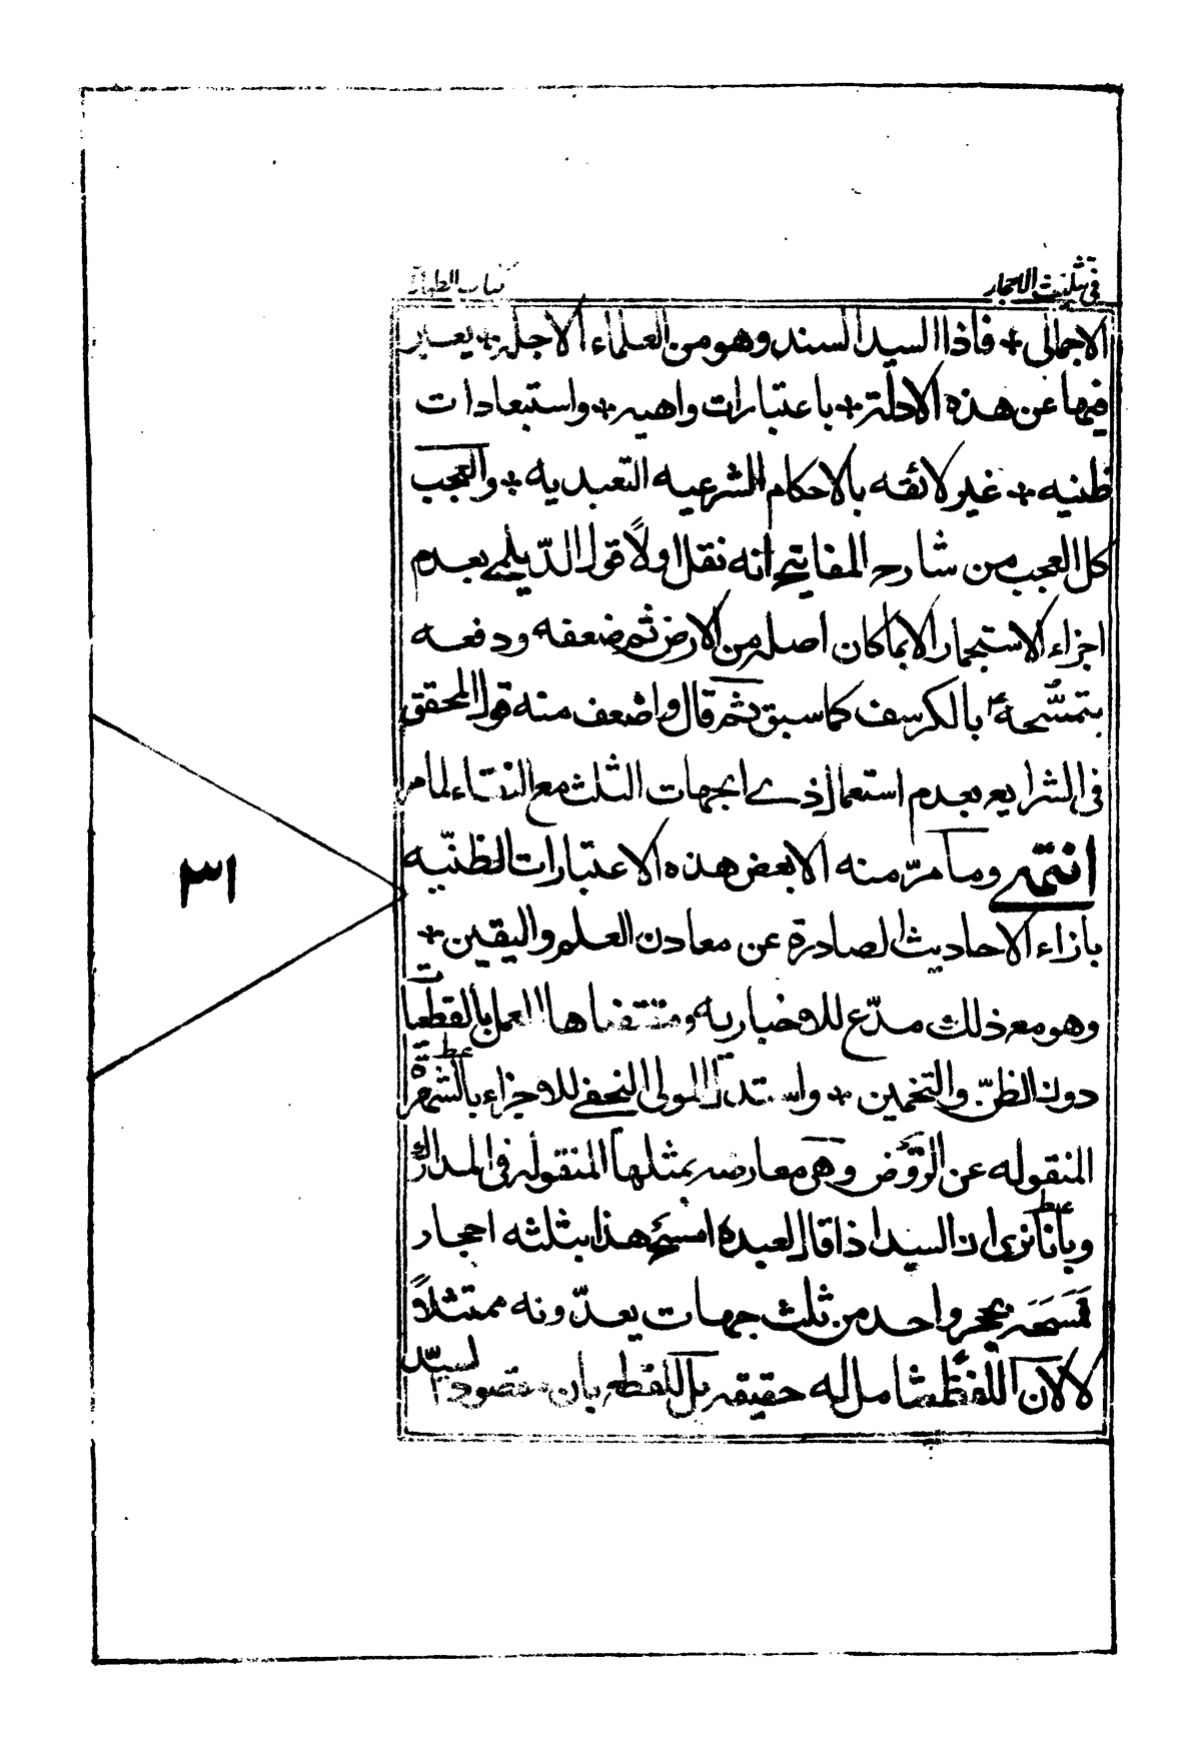 في تثليث الاحجار
كتاب الطهارة
الاجمالى + فاذا السيد السند وهو من العلماء الاجله + يعبر
فيها عن هذه الادلة + باعتبارات واهيه + واستبعادات
ظنيه + غير لائقه بالاحكام الشرعيه التعبديه + والعجب
كل العجب من شارح المفاتيح انه نقل اولاً قول الدّيلمي بعدم
اجزاء الاستجمار الا بما كان اصله من الارض ثم ضعفه ودفعه
بتمسّحه بالكرسف كما سبق ثم قال واضعف منه قول المحقق
فى الشرايع بعدم استعمال ذى الجهات الثلث مع النقاء لما مر
انتهى وما مرّ منه الا بعض هذه الاعتبارات الظنّيه
بازاء الاحاديث الصادرة عن معادن العلم واليقين +
وهو مع ذلك مدّع للاخباريه ومقتضاها العمل بالقطعيات
دون الظنّ والتخمين + واستدل المولى النجفي للاجزاء بالشهرة
المنقوله عن الرّوض وهى معارضه بمثلها المنقوله فى المدارك
وبانا نرى ان السيد اذا قال لعبده امسح هذا بثلثه احجار
فمسحه بحجر واحد من ثلث جهات يعدّونه ممتثلاً
لا لان اللفظ شامل له حقيقه بل للقطع بان مقصود السيّد
٣١